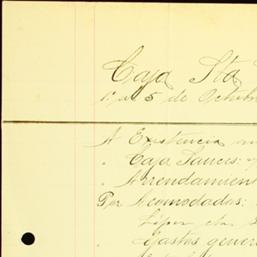 Caja Sta
1º a 5 de Octubre
A Existencia
" Caja Sancis:
" Arrendamien
Por Acomodadas:
" Gastos gener